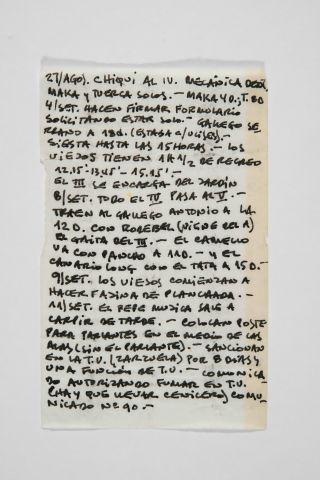 27/AGO). CHIQUI AL IV. MECÁNICA
MAKA Y TUERCA SOLOS.- MAKA 40.; T. 80
4/SET. HACEN FIRMAR FORMULARIO
SOLICITANDO ESTAR SOLO.- GALLEGO SE
RRANO A 18d. (ESTABA C/ULISES).-
SIESTA HASTA LAS 15 HORAS.- LOS
VIEJOS TIENEN 1 H 1/2 DE RECREO
12.15'-13.45' - 15.15'.-
EL III SE ENCARGA DEL JARDÍN
8/SET. TODO EL IV PASA AL V.-
TRAEN AL GALLEGO ANTONIO A LA
12 D. CON ROREBEL (VIENE DEL A)
EL GAITA DEL III.- EL CAMELLO
VA CON PANCHO A 11D.- Y EL
CANARIO LONG CON EL TATA A 15D.-
9/SET. LOS VIEJOS COMIENZAN A
HACER FAJINA DE PLANCHADA.-
11/SET. EL PEPE MUJICA SALE A
CARPIR DE TARDE.- COLOCAN POSTE
PARA PARLANTES EN EL MEDIO DE LAS
ALAS (SIN EL PARLANTE).- SANCIONAN
EN LA T.V. (ZARZUELA) POR 8 DÍAS Y
UNA FUNCIÓN DE T.V.- COMUNICA
DO AUTORIZANDO FUMAR EN T.V.
(HAY QUE LLEVAR CENICERO) COMU-
NICADO Nº 90.-